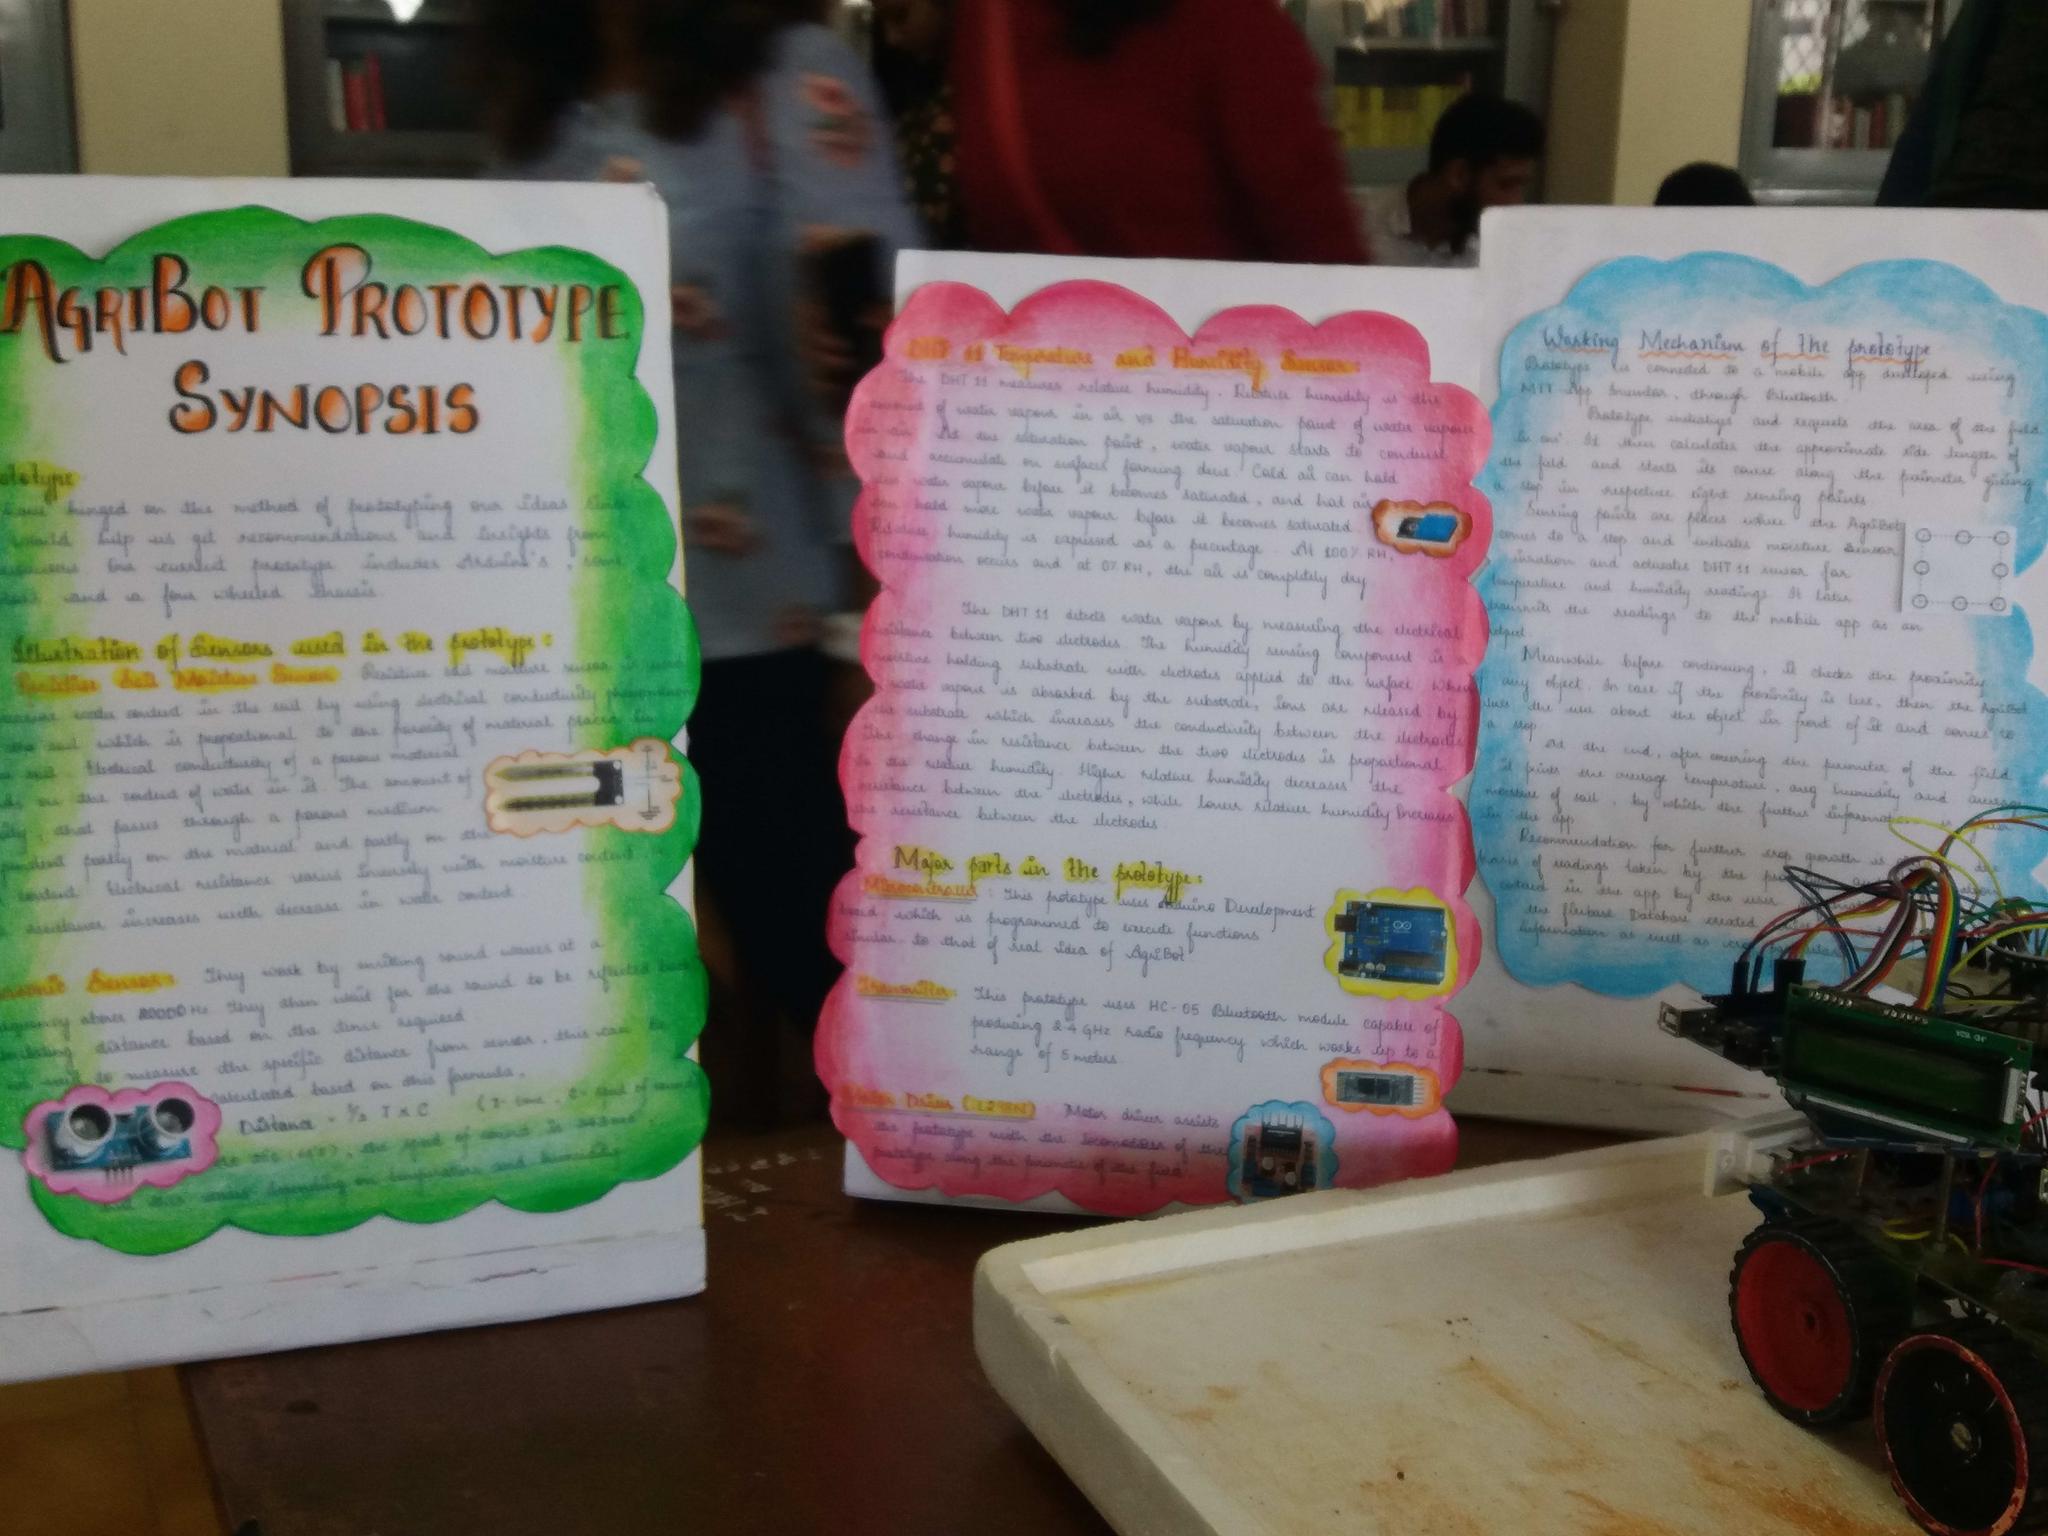 AGRIBOT PROTOTYPE
SYNOPSIS
hinged on the method of prototyping our ideas since
would help us get recommendations and insights from
Our current prototype includes Arduino's, some
and a four wheeled chassis.
Illustration of Sensors used in the prototype:
Resistive Soil Moisture Sensor Resistive soil moisture sensor is used
water content in the soil by using electrical conductivity phenomenon
soil which is proportional to the porosity of material placed in
soil. Electrical conductivity of a porous material
on the content of water in it. The amount of
that passes through a porous medium
partly on the material and partly on the
content. Electrical resistance varies inversely with moisture content
resistance increases with decrease in water content.
Sensor: They work by emitting sound waves at a
frequency above 20000 Hz. They then wait for the sound to be reflected back
distance based on the time required.
to measure the specific distance from sensor, this can be
calculated based on this formula.
Distance = 1/2 T x C (T - time, C - speed of sound)
the speed of sound is
depending on temperature and humidity
DHT 11 Temperature and Humidity Sensor:
The DHT 11 measures relative humidity. Relative humidity is the
amount of water vapour in air v/s the saturation point of water vapour
in air. At the saturation point, water vapour starts to condense
and accumulate on surfaces forming dew. Cold air can hold
less water vapour before it becomes saturated, and hot air
can hold more water vapour before it becomes saturated.
Relative humidity is expressed as a percentage. At 100% RH,
condensation occurs and at 0% RH, the air is completely dry
The DHT 11 detects water vapour by measuring the electrical
resistance between two electrodes. The humidity sensing component is a
moisture holding substrate with electrodes applied to the surface. When
water vapour is absorbed by the substrate, ions are released by
the substrate which increases the conductivity between the electrodes
The change in resistance between the two electrodes is proportional
to the relative humidity. Higher relative humidity decreases the
resistance between the electrodes, while lower relative humidity increases
the resistance between the electrodes.
Major parts in the prototype:
Microcontroller: This prototype uses Arduino Development
board, which is programmed to execute functions
similar to that of real idea of AgriBot
Transmitter: This prototype uses HC-05 Bluetooth module capable of
producing 2.4 GHz radio frequency which works up to a
range of 5 meters.
Motor Driver (L298N) Motor driver assists
the prototype with the locomotion of the
prototype along the perimeter of the field
Working Mechanism of the prototype
Prototype is connected to a mobile app developed using
MIT App Inventor, through Bluetooth.
Prototype initiates and requests the area of the field
in cm². It then calculates the approximate side length of
the field and starts its course along the perimeter giving
a stop in respective eight sensing points
Sensing points are places where the AgriBot
comes to a stop and initiates moisture sensor
and activates DHT 11 sensor for
temperature and humidity readings. It later
transmits the readings to the mobile app as an
output.
Meanwhile before continuing, it checks the proximity
any object. In case if the proximity is less, then the AgriBot
the user about the object in front of it and comes to
a stop
At the end, after covering the perimeter of the field
it prints the average temperature, avg humidity and average
moisture of soil, by which the further information is
in the app.
Recommendation for further crop growth is
basis of readings taken by the
in the app by the user
the firebase Database created
information as well as crop